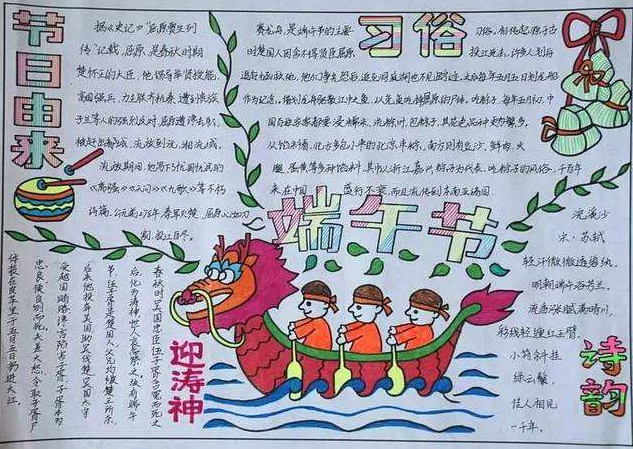 节日由来
据《史记》"屈原贾生列
传"记载,屈原,是春秋时期
楚怀王的大臣。他倡导举贤授能,
富国强兵,力主联齐抗秦,遭到贵族
子兰等人的强烈反对,屈原遭馋去职,
被赶出都城,流放到沅、湘流域。
流放期间,他写下了忧国忧民的
《离骚》《天问》《九歌》等不朽
诗篇。公元前278年,春军
屈原心如刀
割,投江自尽。
习俗
赛龙舟,是端午节的主要
习俗。相传起源于古
时楚国人因舍不得贤臣屈原
投江死去,许多人划舟
追赶拯救他。他们争先恐后,追至洞庭湖时不见踪迹,之后每年五月五日划龙舟
作为纪念。借划龙舟驱散江中之鱼,以免鱼吃掉屈原的尸体。吃粽子,每年五月初,中
国百姓家家都要浸糯米、洗粽叶、包粽子,其花色品种更为繁多。
从馅料看,北方多包小枣的北京枣粽;南方则有豆沙、鲜肉、火
腿、蛋黄等多种馅料,其中以浙江嘉兴粽子为代表。吃粽子的风俗,千百年
来,在中国
盛行不衰,而且流传到东南亚诸国。
端午节
浣溪沙
宋·苏轼
轻汗微微透碧纨,
明朝端午浴芳兰。
流香涨腻满晴川。
彩线轻缠红玉臂,
小符斜挂
绿云鬟。
佳人相见
一千年。
诗韵
迎涛神
春秋时吴国忠臣伍子胥含冤而死之
后,化为涛神,世人哀而祭之,故有端午
节。伍子胥是楚国人,父兄均被楚王所杀,
后来他投奔吴国,助吴伐楚